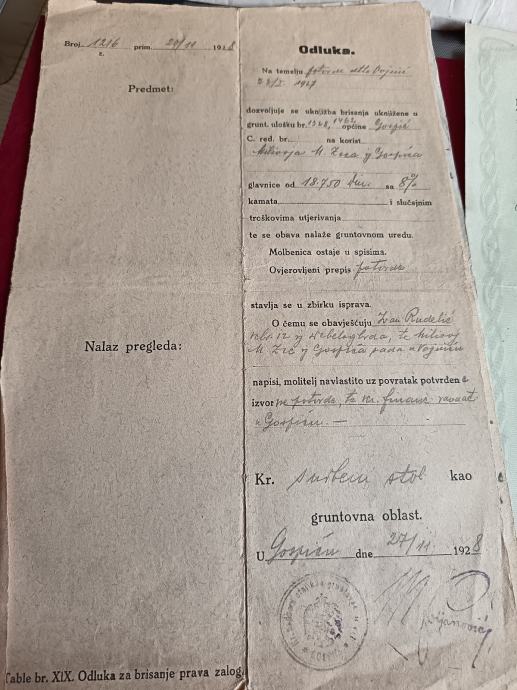 Broj 1216 prim. 24/11 1928
z.
Predmet:
Nalaz pregleda:
Table br. XIX. Odluka za brisanje prava zalog
Odluka.
Na temelju potvrde
1927
dozvoljuje se uknjižba brisanja uknjižene u
grunt. ulošku br. 1328, 1462 općine Gospić
C. red. br. na korist
Milivoja M. Zeca iz Gospića
glavnice od 18.750 Din. sa 8%
kamata i slučajnim
troškovima utjerivanja
te se obava nalaže gruntovnom uredu.
Molbenica ostaje u spisima.
Ovjerovljeni prepis potvrde
stavlja se u zbirku isprava.
O čemu se obavješćuju Ivan Rudelić
kbr. 12 iz te Milivoj
M. Zec iz Gospića sada u Vojniću
napisi, molitelj navlastito uz povratak potvrđen e
izvor ne potvrde, te kr. financ. ravnat
u Gospiću.—
Kr. sudbeni stol kao
gruntovna oblast.
U Gospiću dne 27/11 1928